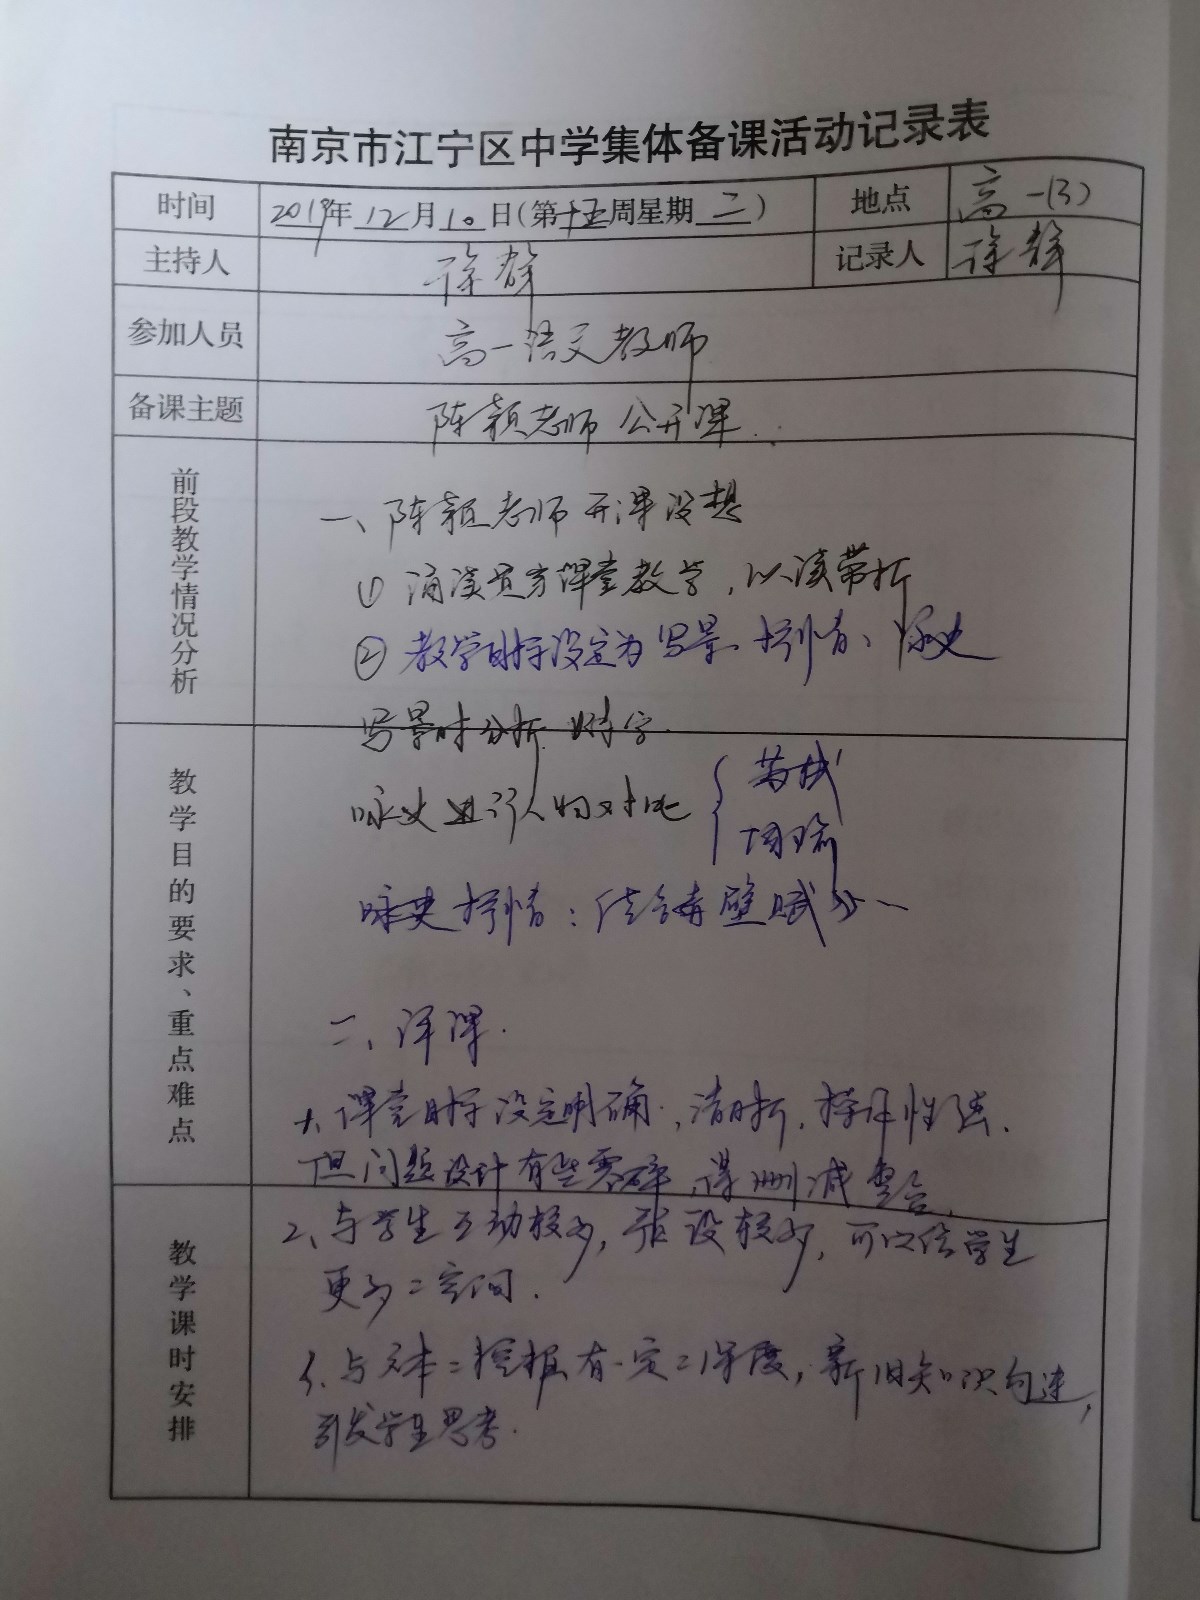 南京市江宁区中学集体备课活动记录表
时间 2019年12月10日(第十五周星期二) 地点 高一(3)
主持人 徐群 记录人 徐群
参加人员 高一语文教师
备课主题 陈颖老师公开课
前段教学情况分析
一、陈颖老师开课设想
① 诵读贯穿课堂教学，以读带析
② 教学目标设定为写景、抒情、咏史
写景时分析 炼字.
教学目的要求、重点难点
咏史进行人物对比 { 苏轼
周瑜
咏史抒情：结合赤壁赋》
二、评课.
1、课堂目标设定明确，清晰，操作性强.
但问题设计有些零碎，得删减整合.
教学课时安排
2、与学生互动较少，预设较多，可以给学生
更多的空间.
3、与文本的挖掘有一定的深度，新旧知识勾连，
引发学生思考.